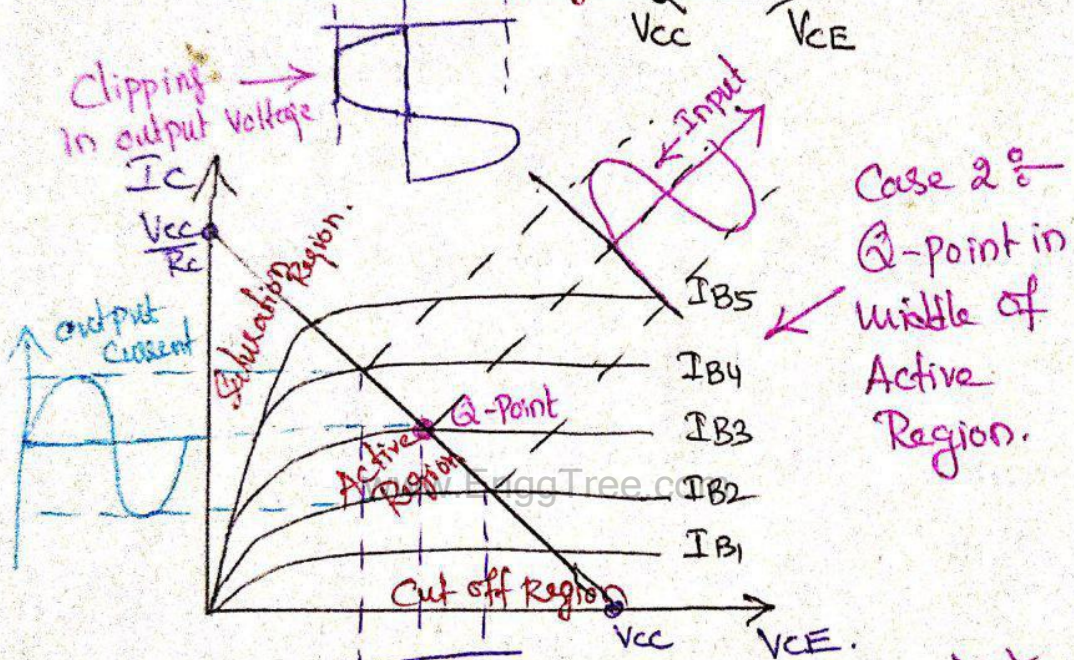 VCC
VCE
Clipping
in output voltage
Input
IC
VCC
RC
Saturation Region.
output
current
IB5
IB4
Q-Point
IB3
Active
Region.
www.EnggTree.com
IB2
IB1
Cut off Region
VCC
VCE.
Case 2 :-
Q-point in
middle of
Active
Region.